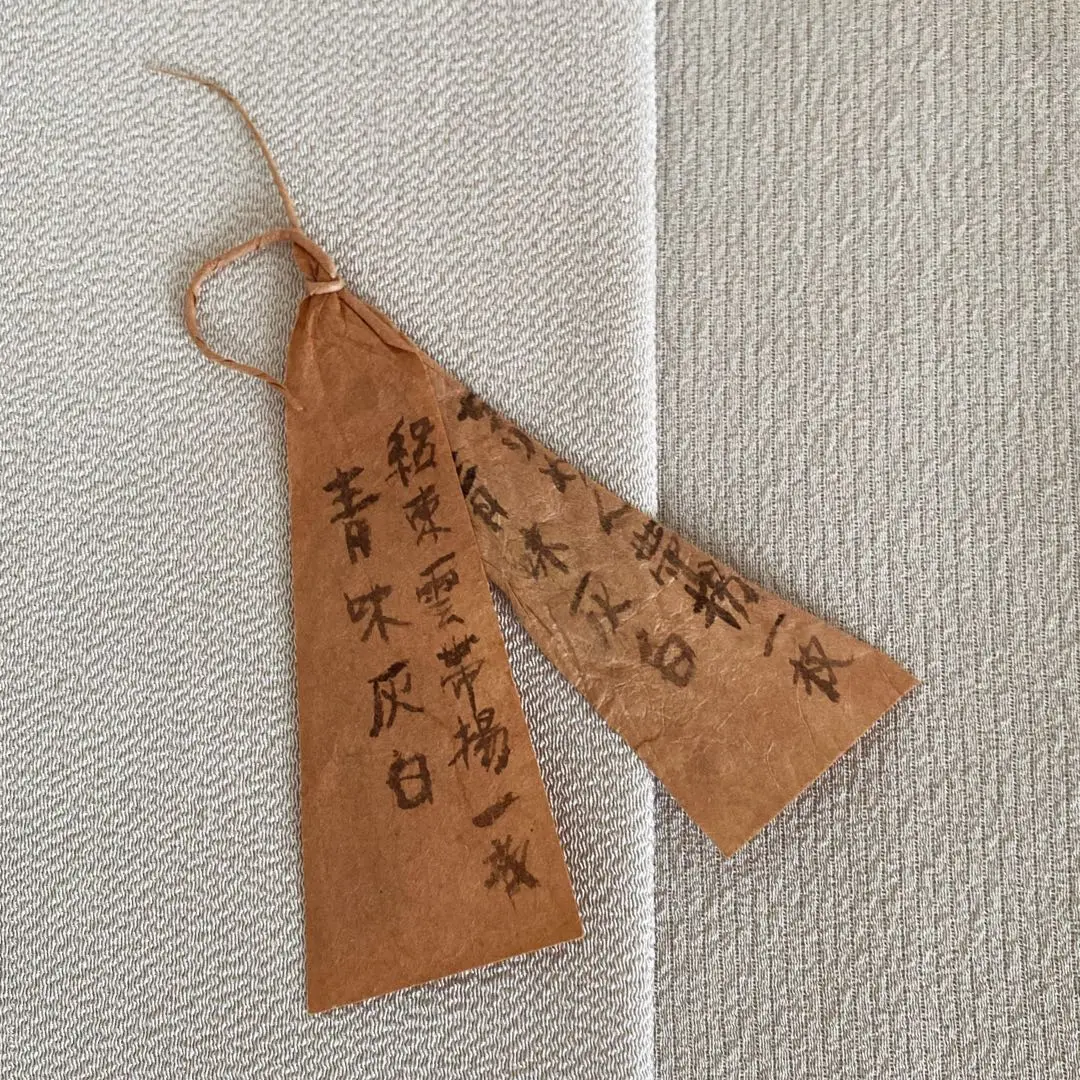 絽東雲帯揚一枚
青味灰白
帯揚一枚
青味灰白